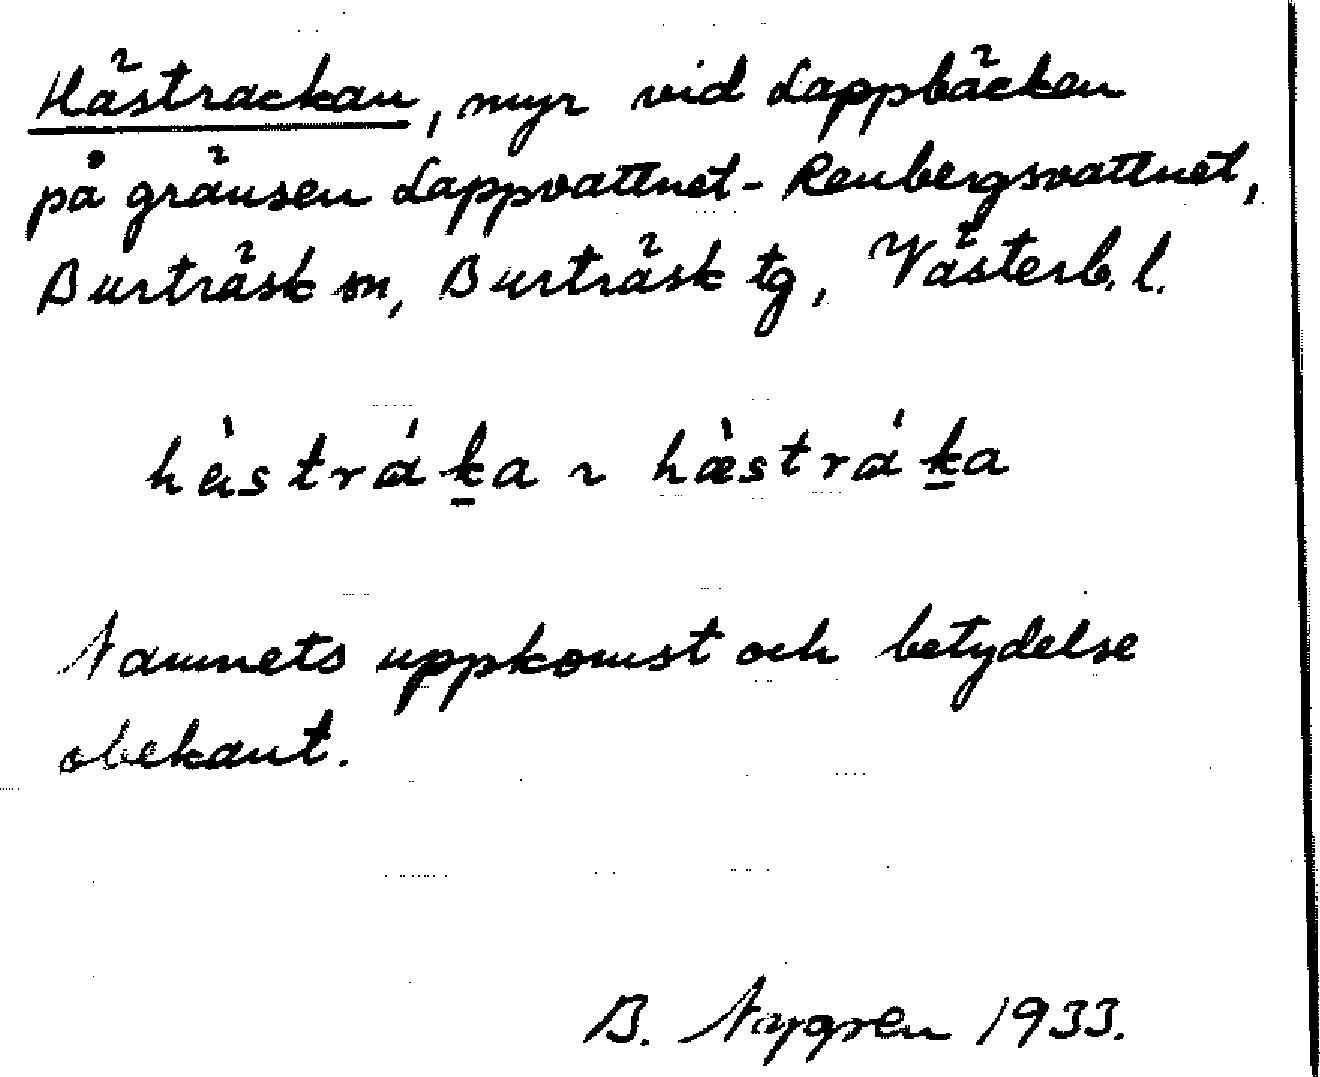 Hästrackan, myr vid Lappbäcken
på gränsen Lappvattnet - Renbergsvattnet,
Burträsk sn, Burträsk tg, Västerb. l.
hàstráḵa ~ hæ̀stráḵa
Namnets uppkomst och betydelse
obekant.
B. Nygren 1933.